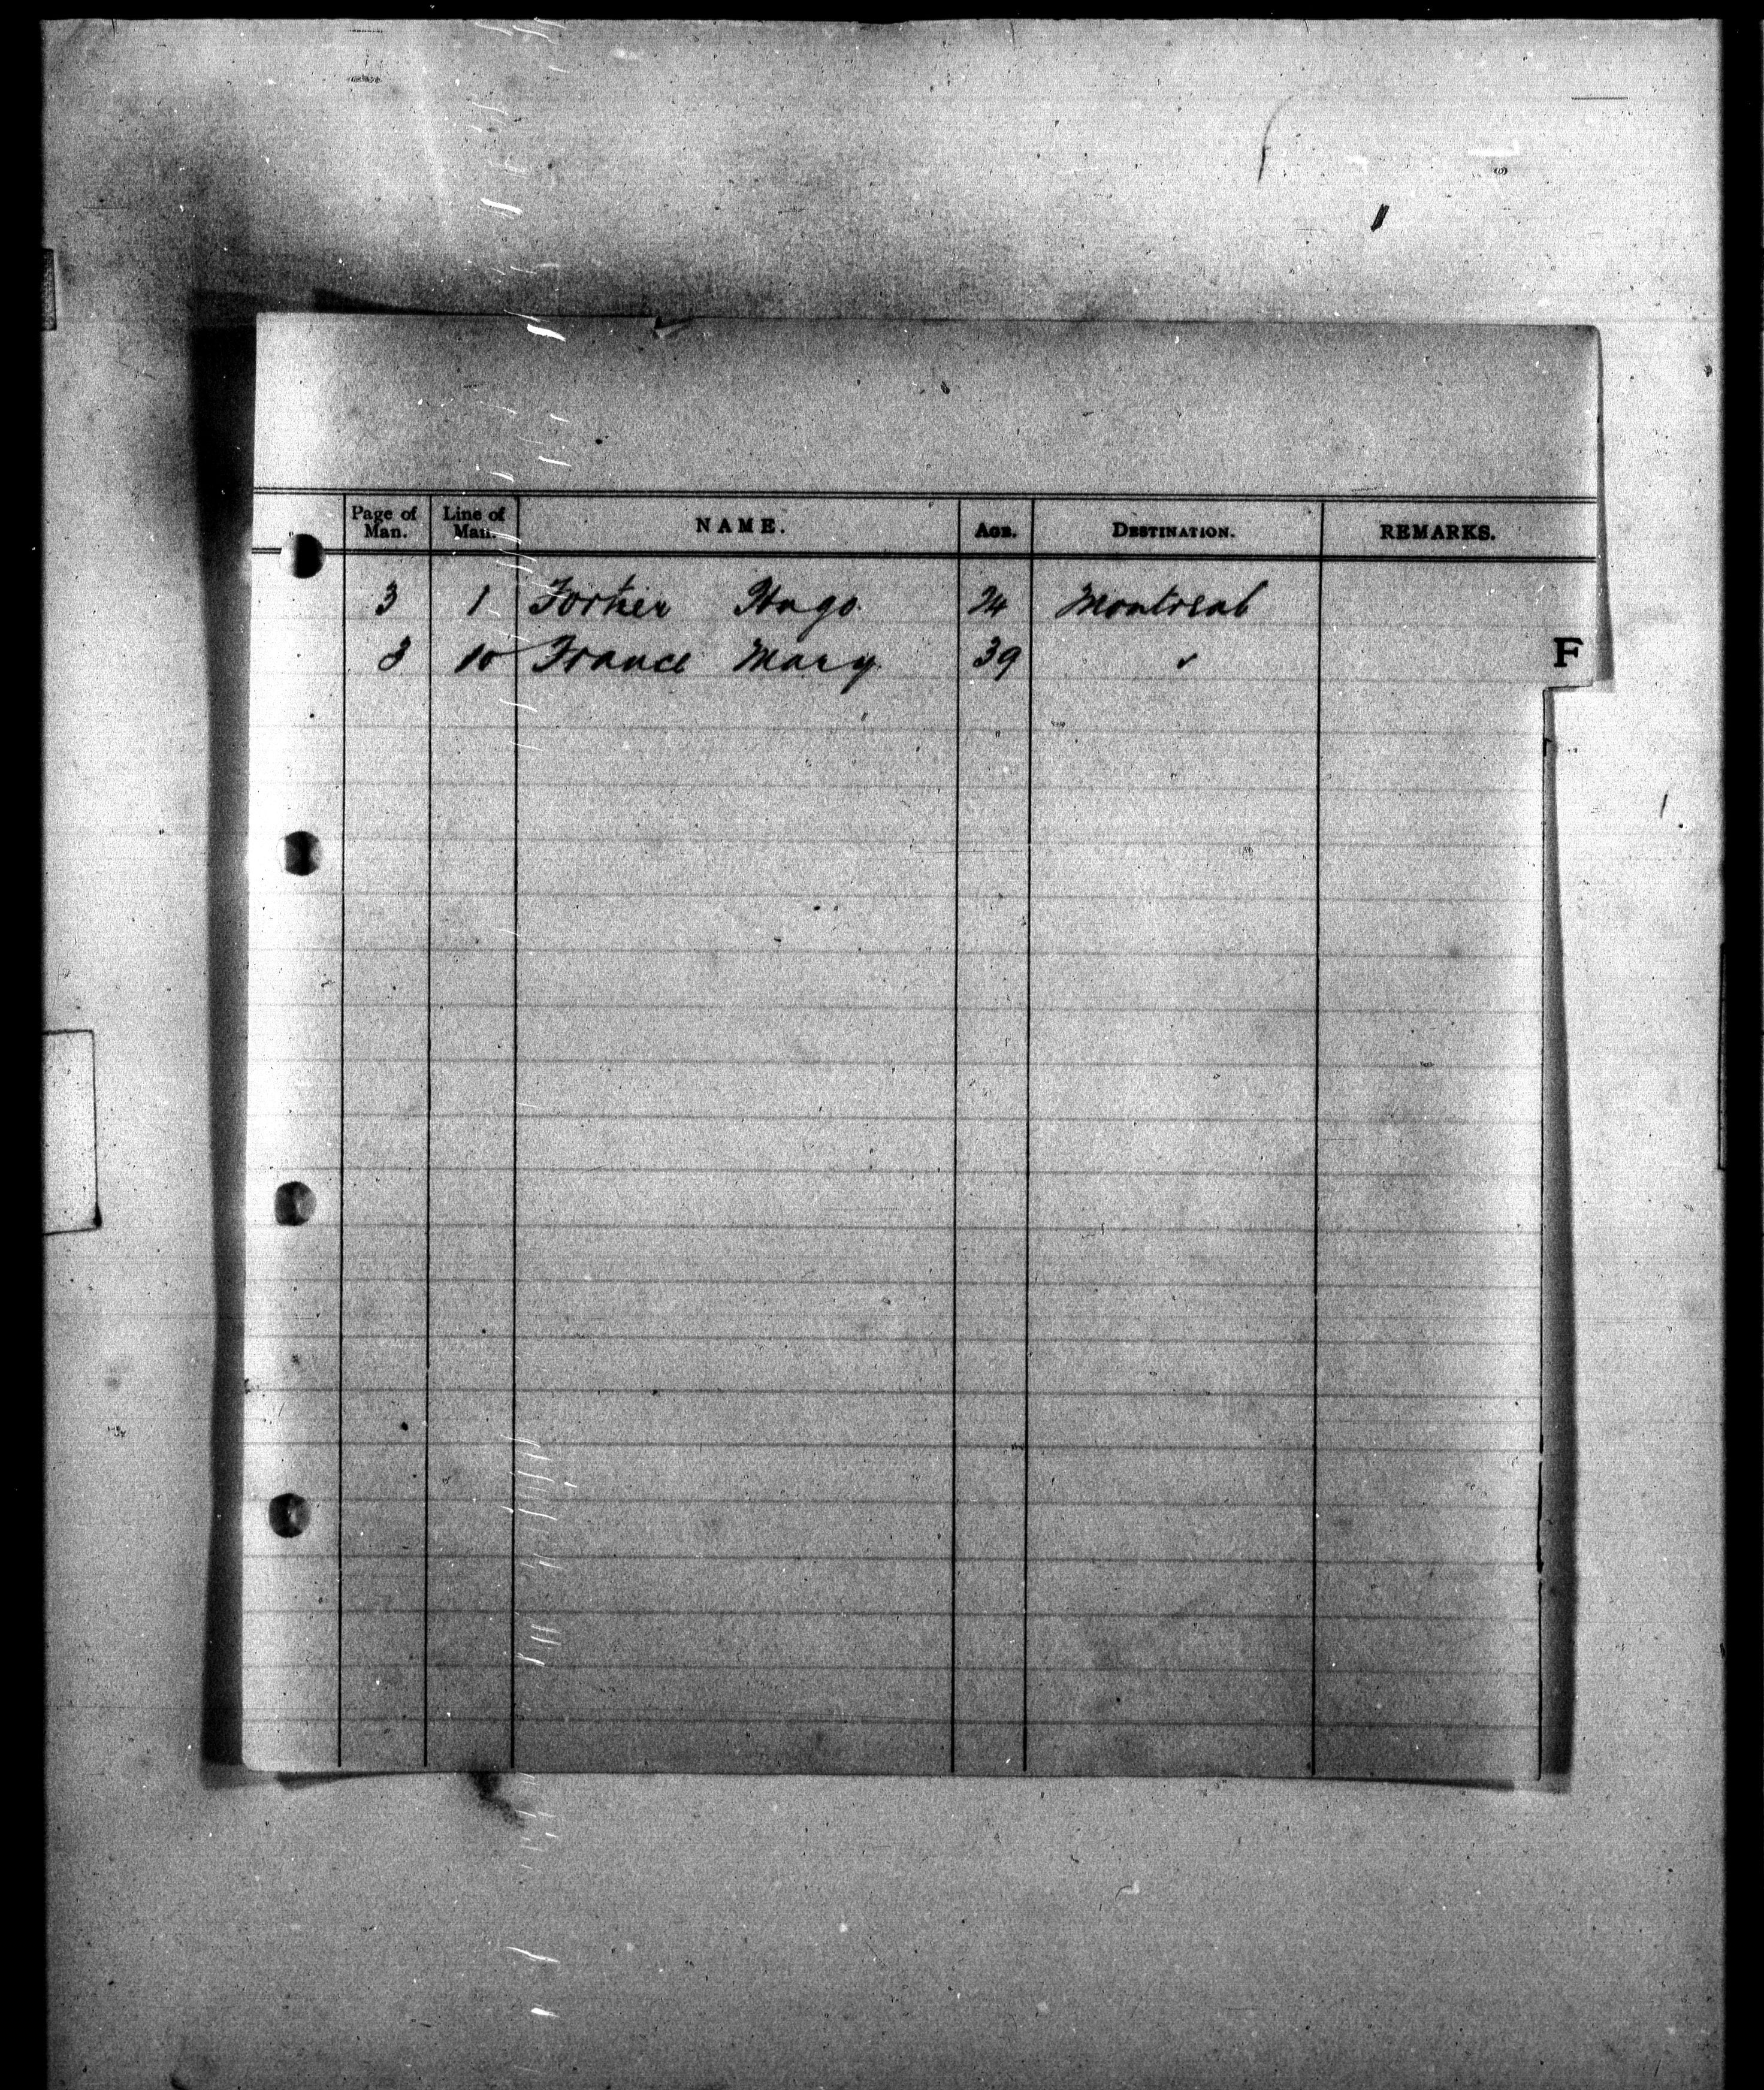 Page of Man. Line of Man. NAME. AGE. DESTINATION. REMARKS.
3 1 Forker Hugo 24 Montreal
3 10 France Mary 39 ✓
F